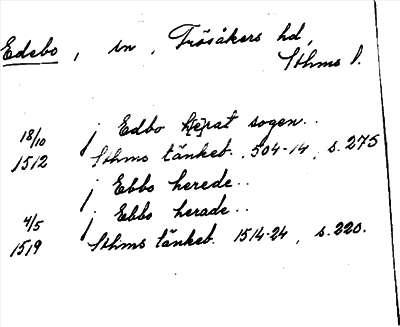 Edebo, sn, Frösåkers hd,
Sthms l.
18/10 j Edbo h[e]rat sogen..
1512 Sthms tänkeb. 504-14, s. 275
j Ebbo herede..
4/5 j Ebbo herade..
1519 Sthms tänkeb. 1514-24, s. 220.